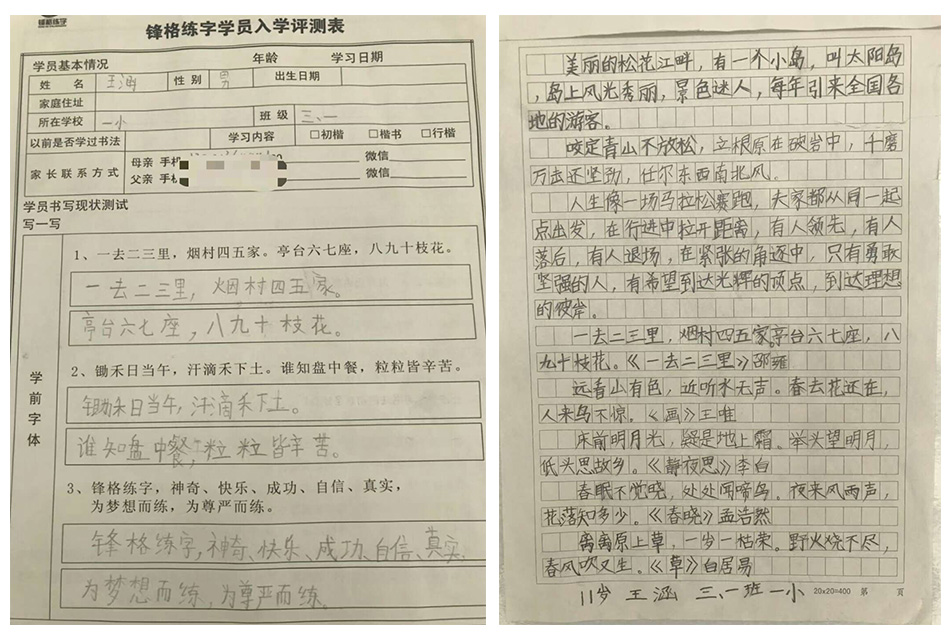 锋格练字
锋格练字学员入学评测表
学员基本情况 年龄 学习日期
姓 名 王涵 性 别 男 出生日期
家庭住址
所在学校 一小 班 级 三、一
以前是否学过书法 学习内容 □初楷 □楷书 □行楷
家长联系方式 母亲 手机 微信
父亲 手机 微信
学员书写现状测试
写一写
学前字体
1、一去二三里，烟村四五家。亭台六七座，八九十枝花。
一去二三里，烟村四五家。
亭台六七座，八九十枝花。
2、锄禾日当午，汗滴禾下土。谁知盘中餐，粒粒皆辛苦。
锄禾日当午，汗滴禾下土。
谁知盘中餐，粒粒皆辛苦。
3、锋格练字，神奇、快乐、成功、自信、真实，
为梦想而练，为尊严而练。
锋格练字，神奇、快乐、成功、自信、真实，
为梦想而练，为尊严而练。
美丽的松花江畔，有一个小岛，叫太阳岛
，岛上风光秀丽，景色迷人，每年引来全国各
地的游客。
咬定青山不放松，立根原在破岩中，千磨
万击还坚劲，任尔东西南北风。
人生像一场马拉松赛跑，大家都从同一起
点出发，在行进中拉开距离，有人领先，有人
落后，有人退场，在紧张的角逐中，只有勇敢
坚强的人，有希望到达光辉的顶点，到达理想
的彼岸。
一去二三里，烟村四五家。亭台六七座，八
九十枝花。《一去二三里》邵雍
远看山有色，近听水无声。春去花还在，
人来鸟不惊。《画》王唯
床前明月光，疑是地上霜。举头望明月，
低头思故乡。《静夜思》李白
春眠不觉晓，处处闻啼鸟。夜来风雨声，
花落知多少。《春晓》孟浩然
离离原上草，一岁一枯荣。野火烧不尽，
春风吹又生。《草》白居易
11岁 王涵 三、一班 一小 20x20=400 第 页